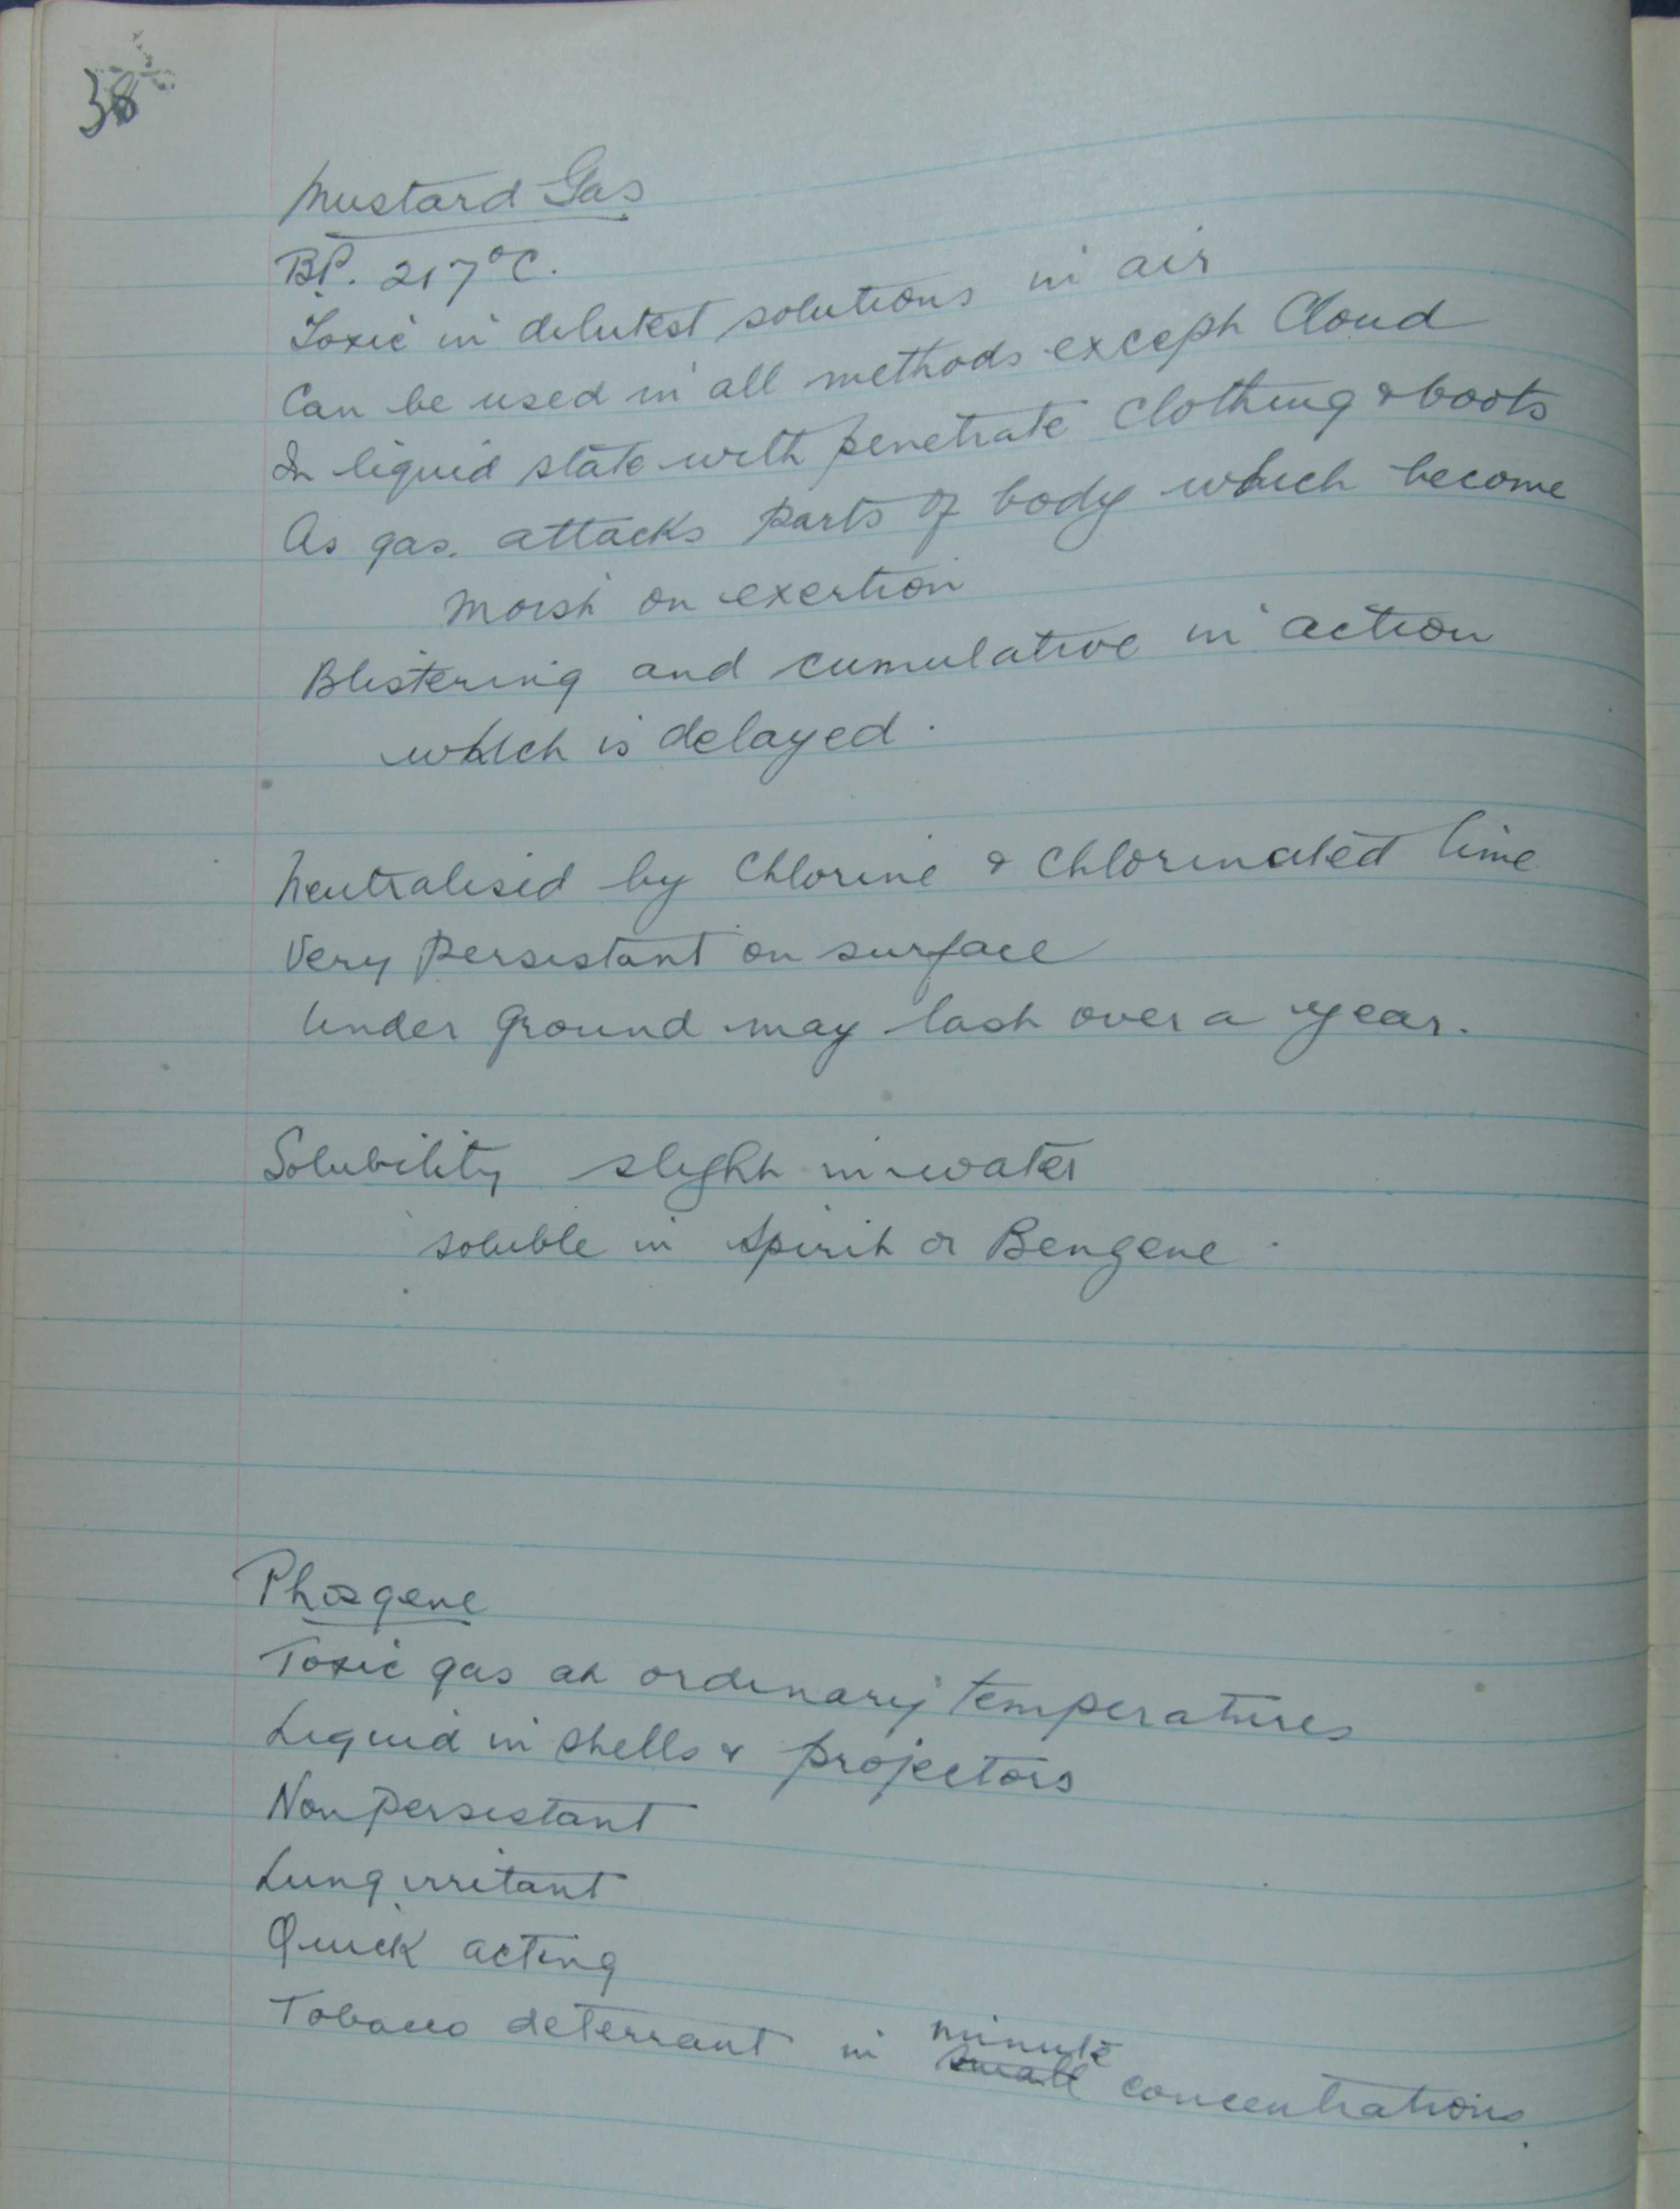 38
Mustard Gas
B.P. 217°C.
Toxic in dilutest solutions in air
Can be used in all methods except Cloud
In liquid state with penetrate clothing & boots
As gas. attacks parts of body which become
moist on exertion
Blistering and cumulative in action
which is delayed.
Neutralised by Chlorine & Chlorinated lime
Very persistant on surface
Under ground may last over a year.
Solubility slight in water
soluble in spirit or Benzene.
Phosgene
Toxic gas at ordinary temperatures
Liquid in shells & projectors
Non persistant
Lung irritant
Quick acting
Tobacco deterrant in small minute concentrations.